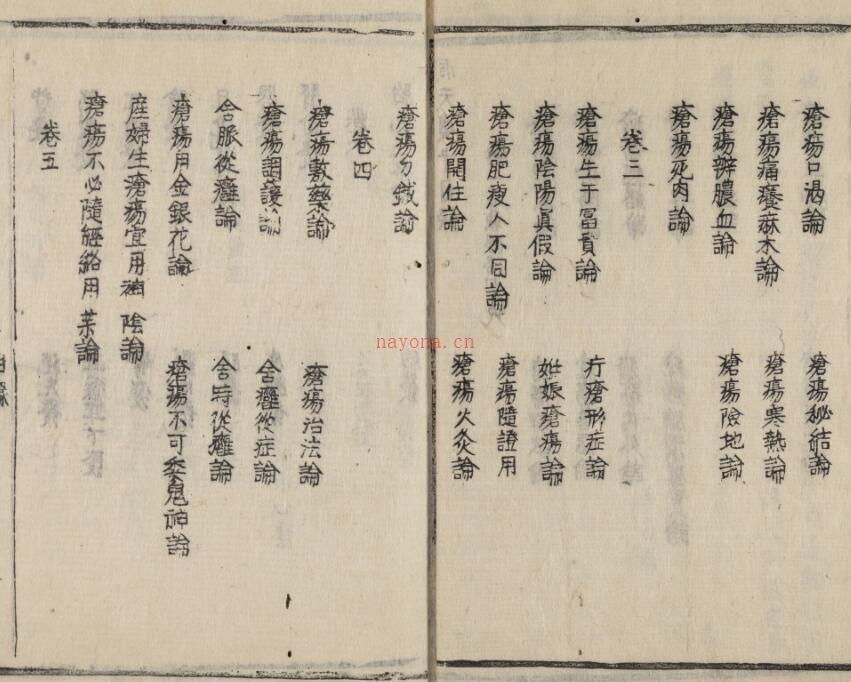 瘡瘍口渴論　瘡瘍秘結論
瘡瘍痛癢麻木論　瘡瘍寒熱論
瘡瘍辨膿血論　瘡瘍險地論
瘡瘍死肉論
卷三
瘡瘍生于富貴論　疔瘡形症論
瘡瘍陰陽真假論　妊娠瘡瘍論
瘡瘍肥瘦人不同論　瘡瘍隨證用
瘡瘍開住論　瘡瘍火灸論
瘡瘍刀鍼論
卷四
瘡瘍敷藥論　瘡瘍治法論
瘡瘍調護論　舍癰從症論
舍脈從癰論　舍時從癰論
瘡瘍用金銀花論　瘡瘍不可委鬼神論
産婦生瘡瘍宜用神陰論
瘡瘍不必隨經絡用藥論
卷五
nayona.cn